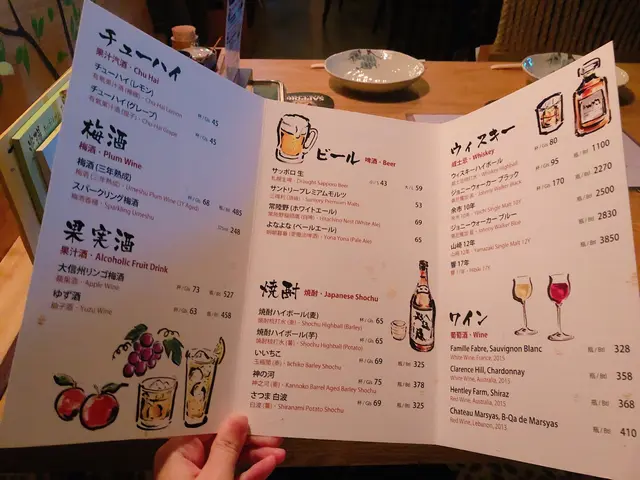 チューハイ
果汁汽酒・Chu Hai
チューハイ(レモン)
Chu Hai Lemon
杯/Gls 45
チューハイ(グレープ)
Chu Hai Grape
杯/Gls 45
梅酒
梅酒・Plum Wine
梅酒(三年熟成)
Umeshu Plum Wine (3Y Aged)
杯/Gls 68
瓶/Btl 485
スパークリング梅酒
梅酒香檳・Sparkling Umeshu
248
果実酒
果汁酒・Alcoholic Fruit Drink
大信州リンゴ梅酒
蘋果酒・Apple Wine
杯/Gls 73
瓶/Btl 527
ゆず酒
柚子酒・Yuzu Wine
杯/Gls 63
瓶/Btl 458
ビール 啤酒・Beer
サッポロ 生
札幌生啤・Draught Sapporo Beer
43
59
サントリープレミアムモルツ
Suntory Premium Malts
53
常陸野(ホワイトエール)
Hitachino Nest (White Ale)
69
よなよな(ペールエール)
Yona Yona (Pale Ale)
65
焼酎 焼酎・Japanese Shochu
焼酎ハイボール(麦)
焼酎梳打水(麥)・Shochu Highball (Barley)
杯/Gls 65
焼酎ハイボール(芋)
焼酎梳打水(薯)・Shochu Highball (Potato)
杯/Gls 65
いいちこ
Iichiko Barley Shochu
杯/Gls 69
瓶/Btl 325
神の河
神之河(麥)・Kannoko Barrel Aged Barley Shochu
杯/Gls 75
瓶/Btl 378
さつま 白波
白波(薯)・Shiranami Potato Shochu
杯/Gls 69
瓶/Btl 325
ウィスキー
威士忌・Whiskey
ウィスキーハイボール
Whiskey Highball
杯/Gls 80
ジョニーウォーカー ブラック
Johnny Walker Black
杯/Gls 95
瓶/Btl 1100
余市 10年
Yoichi Single Malt 10Y
杯/Gls 170
瓶/Btl 2270
ジョニーウォーカー ブルー
Johnny Walker Blue
瓶/Btl 2500
山崎 12年
山崎 12年・Yamazaki Single Malt 12Y
瓶/Btl 2830
響 17年
Hibiki 17Y
瓶/Btl 3850
ワイン
葡萄酒・Wine
Famille Fabre, Sauvignon Blanc
White Wine, France, 2015
瓶/Btl 328
Clarence Hill, Chardonnay
White Wine, Australia, 2015
瓶/Btl 358
Hentley Farm, Shiraz
Red Wine, Australia, 2015
瓶/Btl 368
Chateau Marsyas, B-Qa de Marsyas
Red Wine, Lebanon, 2013
瓶/Btl 410